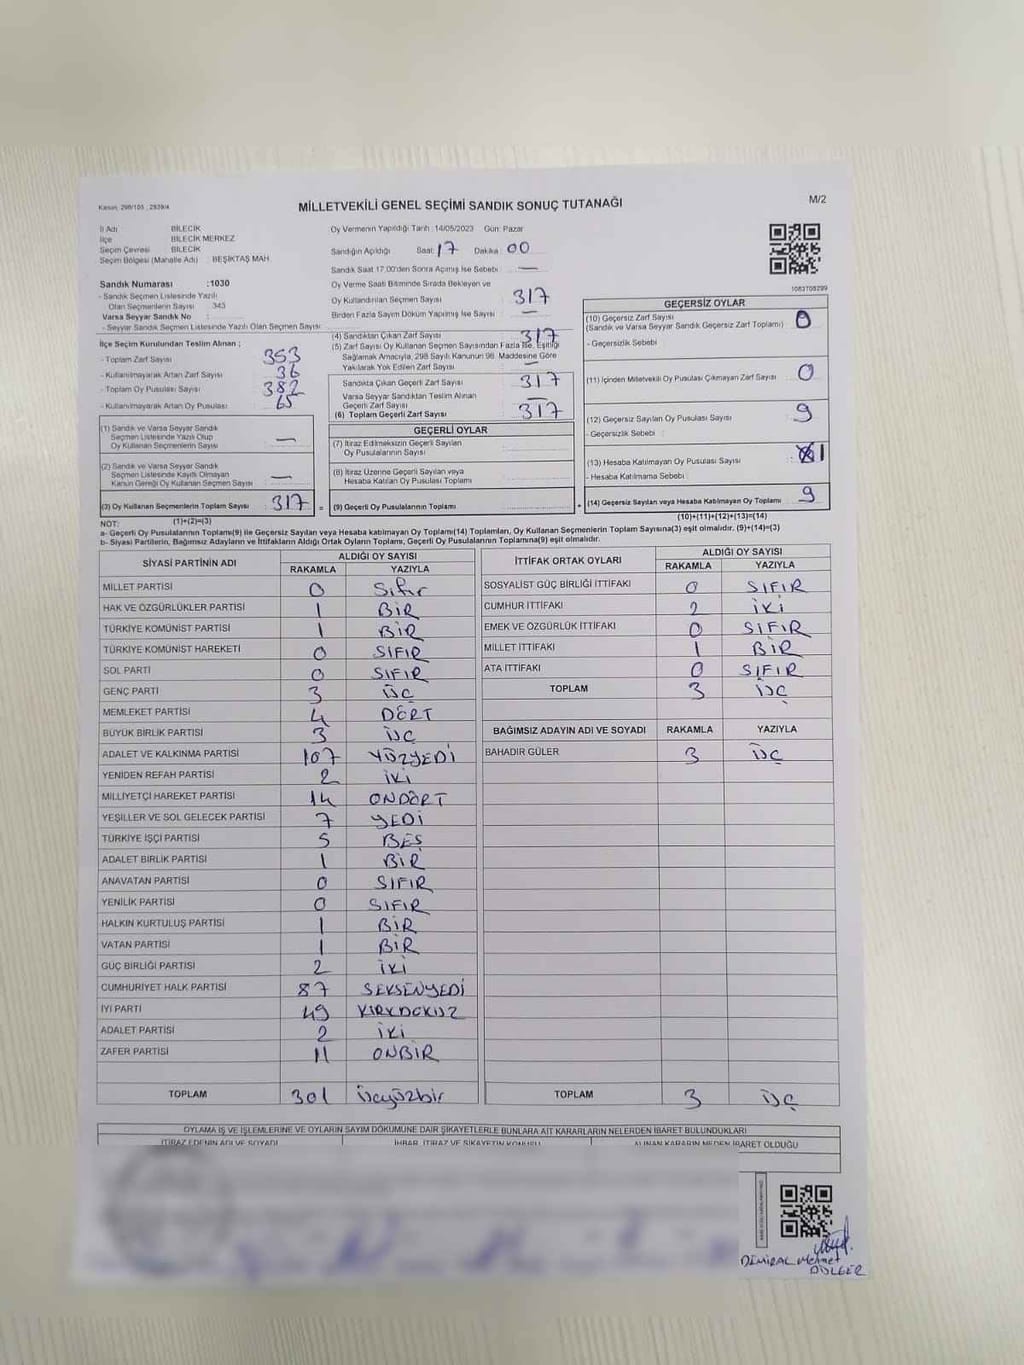 Kanun: 298/105 ; 2839/4
MİLLETVEKİLİ GENEL SEÇİMİ SANDIK SONUÇ TUTANAĞI
M/2
İl Adı BİLECİK
İlçe BİLECİK MERKEZ
Seçim Çevresi BİLECİK
Seçim Bölgesi (Mahalle Adı) : BEŞİKTAŞ MAH
Sandık Numarası :1030
- Sandık Seçmen Listesinde Yazılı
Olan Seçmenlerin Sayısı : 343
Varsa Seyyar Sandık No :
- Seyyar Sandık Seçmen Listesinde Yazılı Olan Seçmen Sayısı :
İlçe Seçim Kurulundan Teslim Alınan ;
- Toplam Zarf Sayısı 353
- Kullanılmayarak Artan Zarf Sayısı 36
- Toplam Oy Pusulası Sayısı 382
- Kullanılmayarak Artan Oy Pusulası 65
(1) Sandık ve Varsa Seyyar Sandık
Seçmen Listesinde Yazılı Olup
Oy Kullanan Seçmenlerin Sayısı —
(2) Sandık ve Varsa Seyyar Sandık
Seçmen Listesinde Kayıtlı Olmayan
Kanun Gereği Oy Kullanan Seçmen Sayısı —
(3) Oy Kullanan Seçmenlerin Toplam Sayısı 317
(1)+(2)=(3)
Oy Vermenin Yapıldığı Tarih : 14/05/2023 Gün: Pazar
Sandığın Açıldığı Saat: 17 Dakika: 00
Sandık Saat 17.00'den Sonra Açılmış İse Sebebi : —
Oy Verme Saati Bitiminde Sırada Bekleyen ve
Oy Kullandırılan Seçmen Sayısı 317
Birden Fazla Sayım Döküm Yapılmış İse Sayısı : —
(4) Sandıktan Çıkan Zarf Sayısı 317
(5) Zarf Sayısı Oy Kullanan Seçmen Sayısından Fazla İse, Eşitliği
Sağlamak Amacıyla, 298 Sayılı Kanunun 98. Maddesine Göre
Yakılarak Yok Edilen Zarf Sayısı —
Sandıkta Çıkan Geçerli Zarf Sayısı 317
Varsa Seyyar Sandıktan Teslim Alınan
Geçerli Zarf Sayısı —
(6) Toplam Geçerli Zarf Sayısı 317
GEÇERLİ OYLAR
(7) İtiraz Edilmeksizin Geçerli Sayılan
Oy Pusulalarının Sayısı
(8) İtiraz Üzerine Geçerli Sayılan veya
Hesaba Katılan Oy Pusulası Toplamı
= (9) Geçerli Oy Pusulalarının Toplamı +
1083708299
GEÇERSİZ OYLAR
(10) Geçersiz Zarf Sayısı 0
(Sandık ve Varsa Seyyar Sandık Geçersiz Zarf Toplamı)
- Geçersizlik Sebebi :
(11) İçinden Milletvekili Oy Pusulası Çıkmayan Zarf Sayısı 0
(12) Geçersiz Sayılan Oy Pusulası Sayısı 9
- Geçersizlik Sebebi :
(13) Hesaba Katılmayan Oy Pusulası Sayısı 1
- Hesaba Katılmama Sebebi :
(14) Geçersiz Sayılan veya Hesaba Katılmayan Oy Toplamı 9
(10)+(11)+(12)+(13)=(14)
NOT:
a- Geçerli Oy Pusulalarının Toplamı(9) ile Geçersiz Sayılan veya Hesaba katılmayan Oy Toplamı(14) Toplamları, Oy Kullanan Seçmenlerin Toplam Sayısına(3) eşit olmalıdır. (9)+(14)=(3)
b- Siyasi Partilerin, Bağımsız Adayların ve İttifakların Aldığı Ortak Oyların Toplamı, Geçerli Oy Pusulalarının Toplamına(9) eşit olmalıdır.
SİYASİ PARTİNİN ADI ALDIĞI OY SAYISI
RAKAMLA YAZIYLA
MİLLET PARTİSİ 0 Sıfır
HAK VE ÖZGÜRLÜKLER PARTİSİ 1 BİR
TÜRKİYE KOMÜNİST PARTİSİ 1 BİR
TÜRKİYE KOMÜNİST HAREKETİ 0 SIFIR
SOL PARTİ 0 SIFIR
GENÇ PARTİ 3 ÜÇ
MEMLEKET PARTİSİ 4 DÖRT
BÜYÜK BİRLİK PARTİSİ 3 ÜÇ
ADALET VE KALKINMA PARTİSİ 107 YÜZYEDİ
YENİDEN REFAH PARTİSİ 2 İKİ
MİLLİYETÇİ HAREKET PARTİSİ 14 ONDÖRT
YEŞİLLER VE SOL GELECEK PARTİSİ 7 YEDİ
TÜRKİYE İŞÇİ PARTİSİ 5 BEŞ
ADALET BİRLİK PARTİSİ 1 BİR
ANAVATAN PARTİSİ 0 SIFIR
YENİLİK PARTİSİ 0 SIFIR
HALKIN KURTULUŞ PARTİSİ 1 BİR
VATAN PARTİSİ 1 BİR
GÜÇ BİRLİĞİ PARTİSİ 2 İKİ
CUMHURİYET HALK PARTİSİ 87 SEKSENYEDİ
İYİ PARTİ 49 KIRKDOKUZ
ADALET PARTİSİ 2 İKİ
ZAFER PARTİSİ 11 ONBİR
TOPLAM 301 Üçyüzbir
İTTİFAK ORTAK OYLARI ALDIĞI OY SAYISI
RAKAMLA YAZIYLA
SOSYALİST GÜÇ BİRLİĞİ İTTİFAKI 0 SIFIR
CUMHUR İTTİFAKI 2 İKİ
EMEK VE ÖZGÜRLÜK İTTİFAKI 0 SIFIR
MİLLET İTTİFAKI 1 BİR
ATA İTTİFAKI 0 SIFIR
TOPLAM 3 ÜÇ
BAĞIMSIZ ADAYIN ADI VE SOYADI RAKAMLA YAZIYLA
BAHADIR GÜLER 3 ÜÇ
TOPLAM 3 ÜÇ
OYLAMA İŞ VE İŞLEMLERİNE VE OYLARIN SAYIM DÖKÜMÜNE DAİR ŞİKAYETLERLE BUNLARA AİT KARARLARIN NELERDEN İBARET BULUNDUKLARI
İTİRAZ EDENİN ADI VE SOYADI İHBAR, İTİRAZ VE ŞİKAYETİN KONUSU ALINAN KARARIN NEDEN İBARET OLDUĞU
DEMİRAL Mehmet
DÜLGER